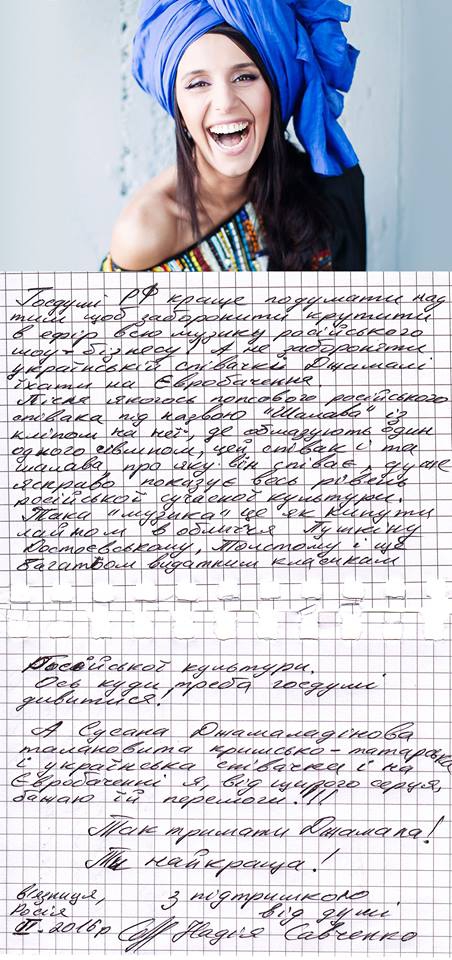 Госдумі РФ краще подумати над
тим щоб заборонити крутити
в ефір всю музику російського
шоу-бізнесу! А не забороняти
українській співачкі Джамалі
їхати на Євробачення
Пісня якогось попсового російського
співака під назвою "Шалава" із
кліпом на неї, де обмазують один
одного , цей співак і та
шалава, про яку він співає, дуже
яскраво показує весь рівень
російської сучасної культури.
Така "музика" це як кинути
лайном в обличчя Пушкіну
Достоєвському, Толстому і ще
багатьом видатним класикам
Російської культури.
Ось куди треба госдумі
дивитися.
А Сусана Джамаладінова
талановита кримсько-татарська
і українська співачка і на
Євробаченні я, від щирого серця,
бажаю їй перемоги!!!
Так тримати Джамала!
Ти найкраща!
в'язниця,
Росія
2016р
з підтримкою
від душі
Надія Савченко